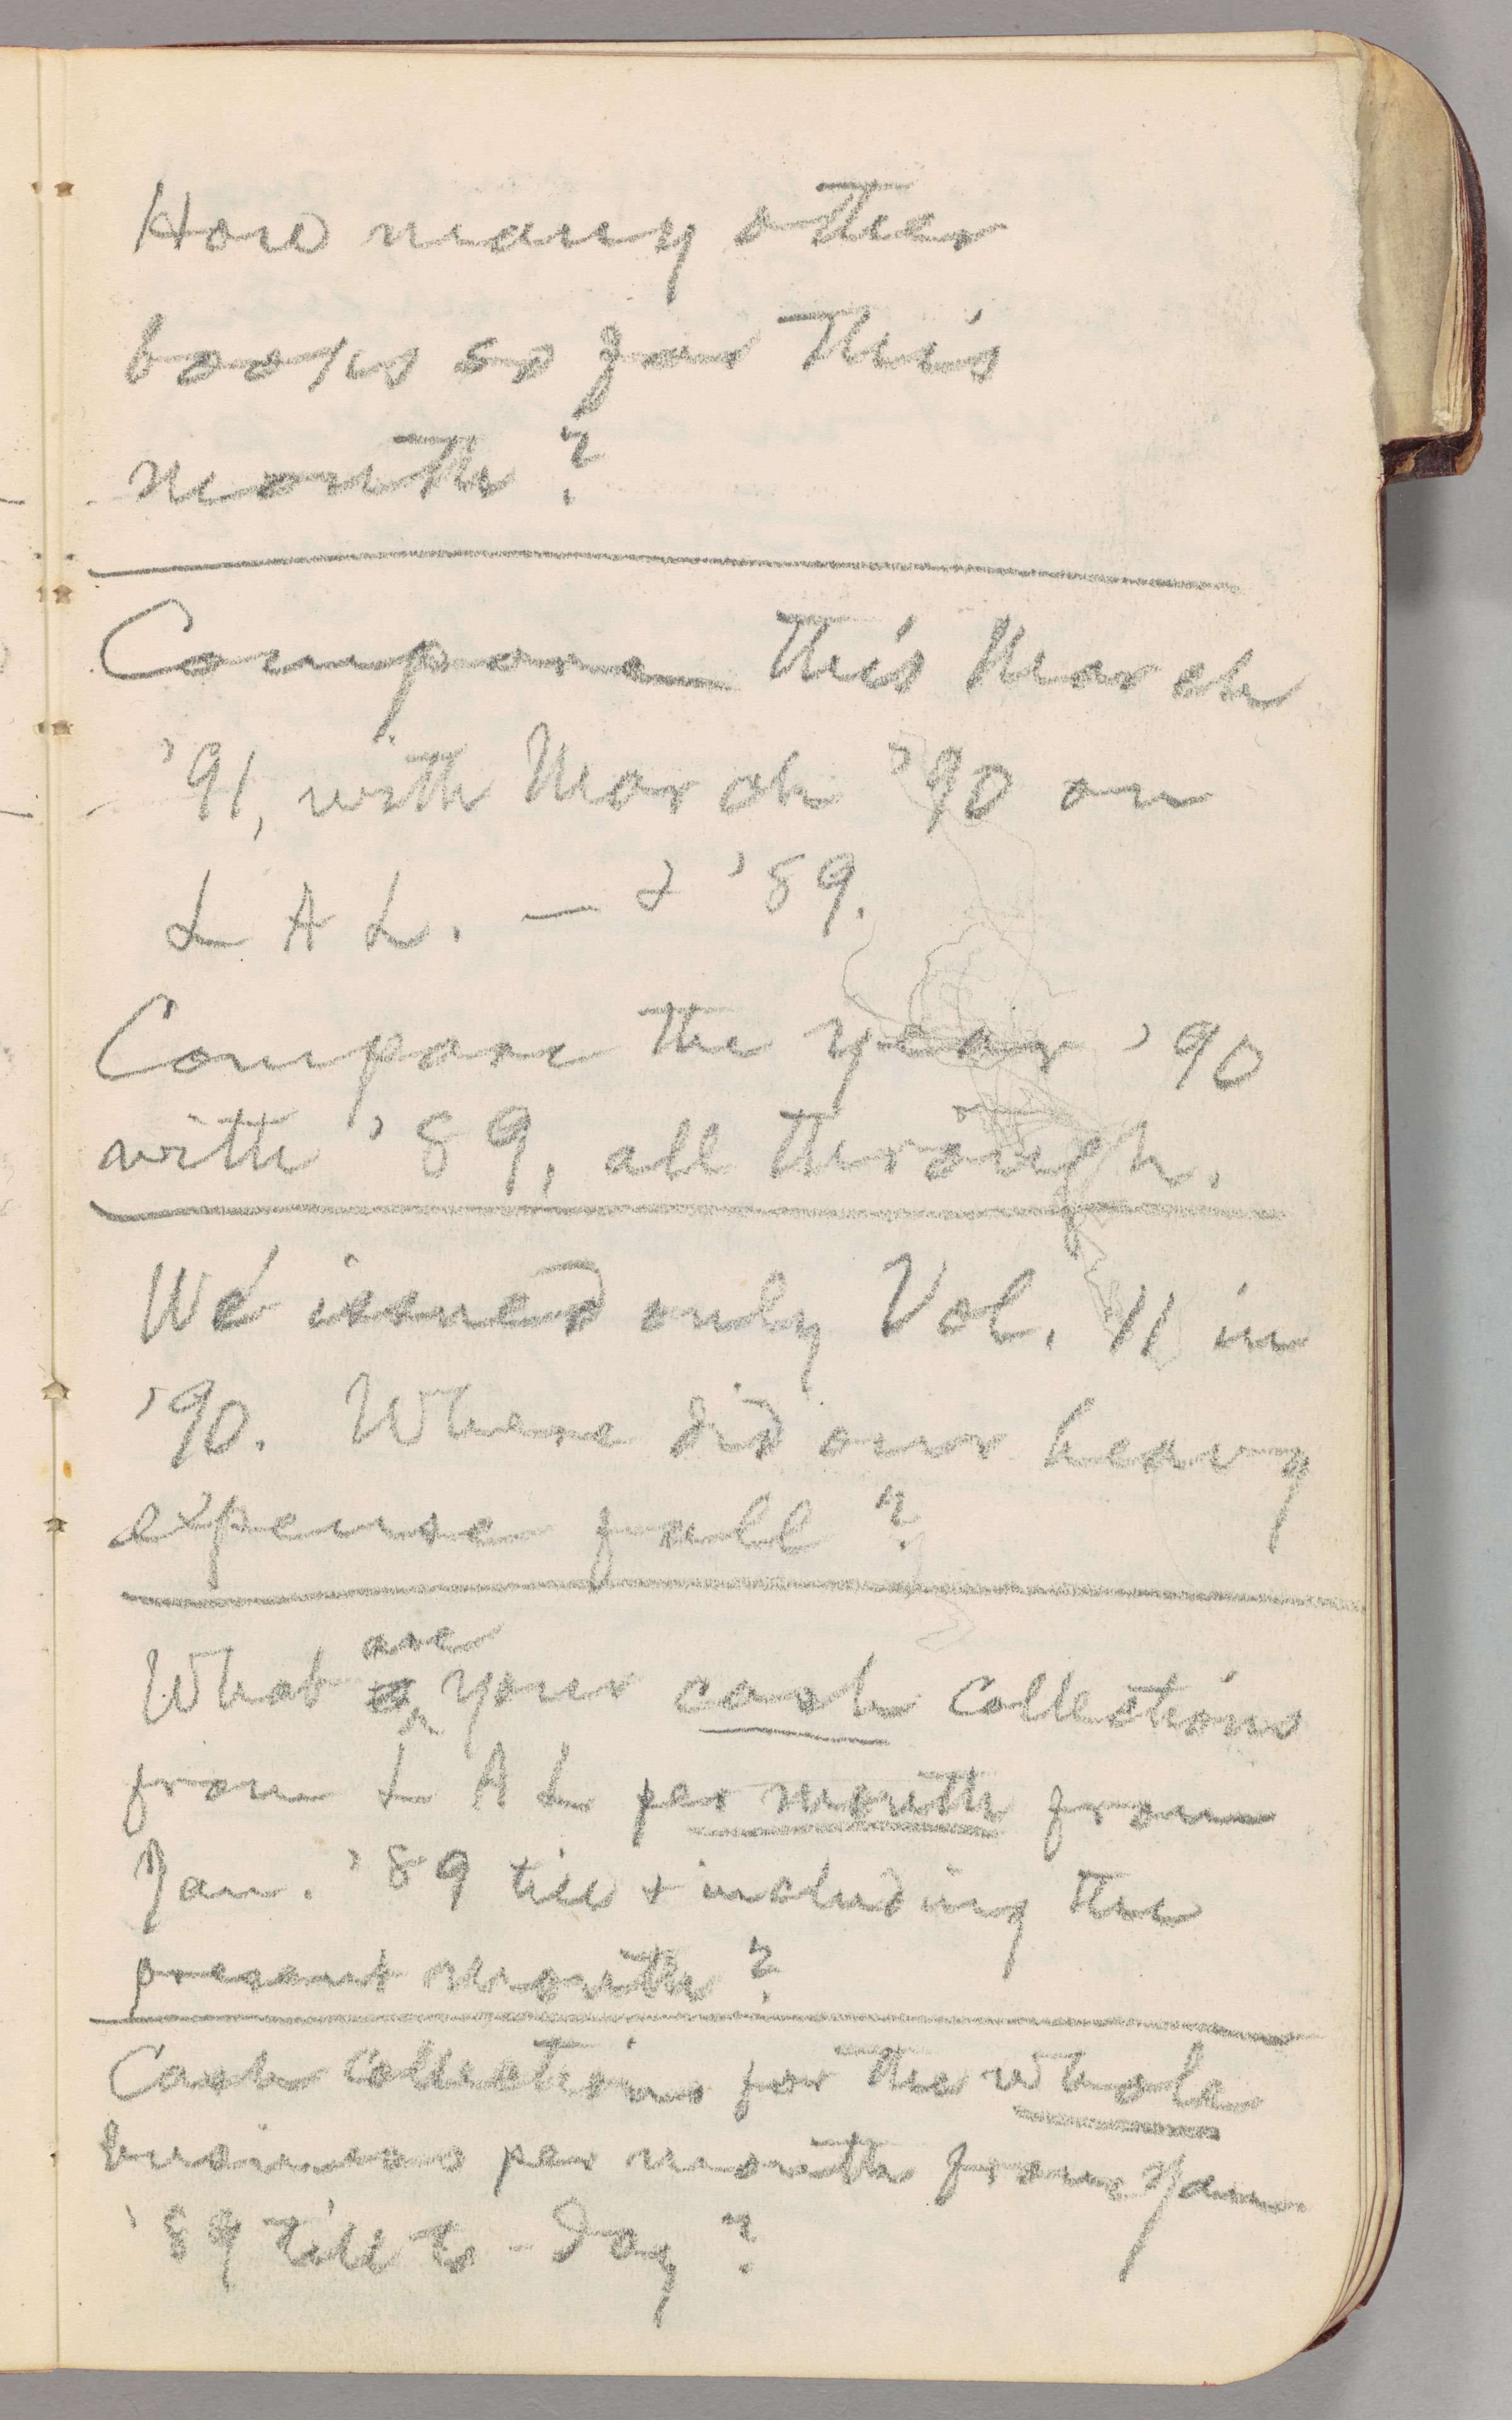 How many other
books so far this
month?
Compare this March
'91, with March '90 on
L A L. — & '89.
Compare the year '90
with '89, all through.
We issued only Vol. 11 in
'90. Where did our heavy
expense fall?
What are your cash collections
from L A L per month from
Jan. '89 till & including the
present month?
Cash collections for the whole
business per month from Jan.
'89 till to-day?